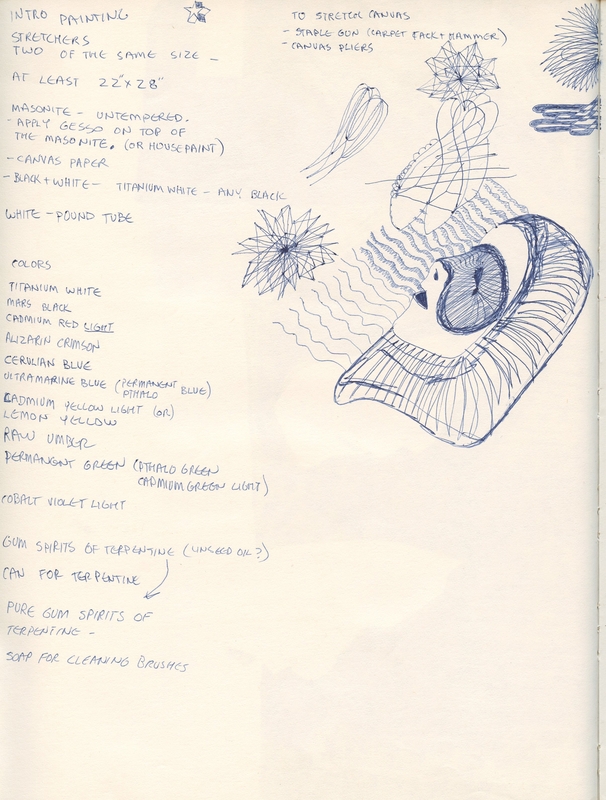 INTRO PAINTING
STRETCHERS
TWO OF THE SAME SIZE -
AT LEAST 22"X28"
MASONITE - UNTEMPERED.
- APPLY GESSO ON TOP OF
THE MASONITE. (OR HOUSEPAINT)
- CANVAS PAPER
- BLACK + WHITE - TITANIUM WHITE - ANY BLACK
WHITE - POUND TUBE
COLORS
TITANIUM WHITE
MARS BLACK
CADMIUM RED LIGHT
ALIZARIN CRIMSON
CERULIAN BLUE
ULTRAMARINE BLUE (PERMANENT
PTHALO BLUE)
CADMIUM YELLOW LIGHT (OR)
LEMON YELLOW
RAW UMBER
PERMANENT GREEN (PTHALO GREEN
CADMIUM GREEN LIGHT)
COBALT VIOLET LIGHT
GUM SPIRITS OF TERPENTINE (LINSEED OIL?)
CAN FOR TERPENTINE
PURE GUM SPIRITS OF
TERPENTINE -
SOAP FOR CLEANING BRUSHES
TO STRETCH CANVAS
- STAPLE GUN (CARPET TACK + HAMMER)
- CANVAS PLIERS